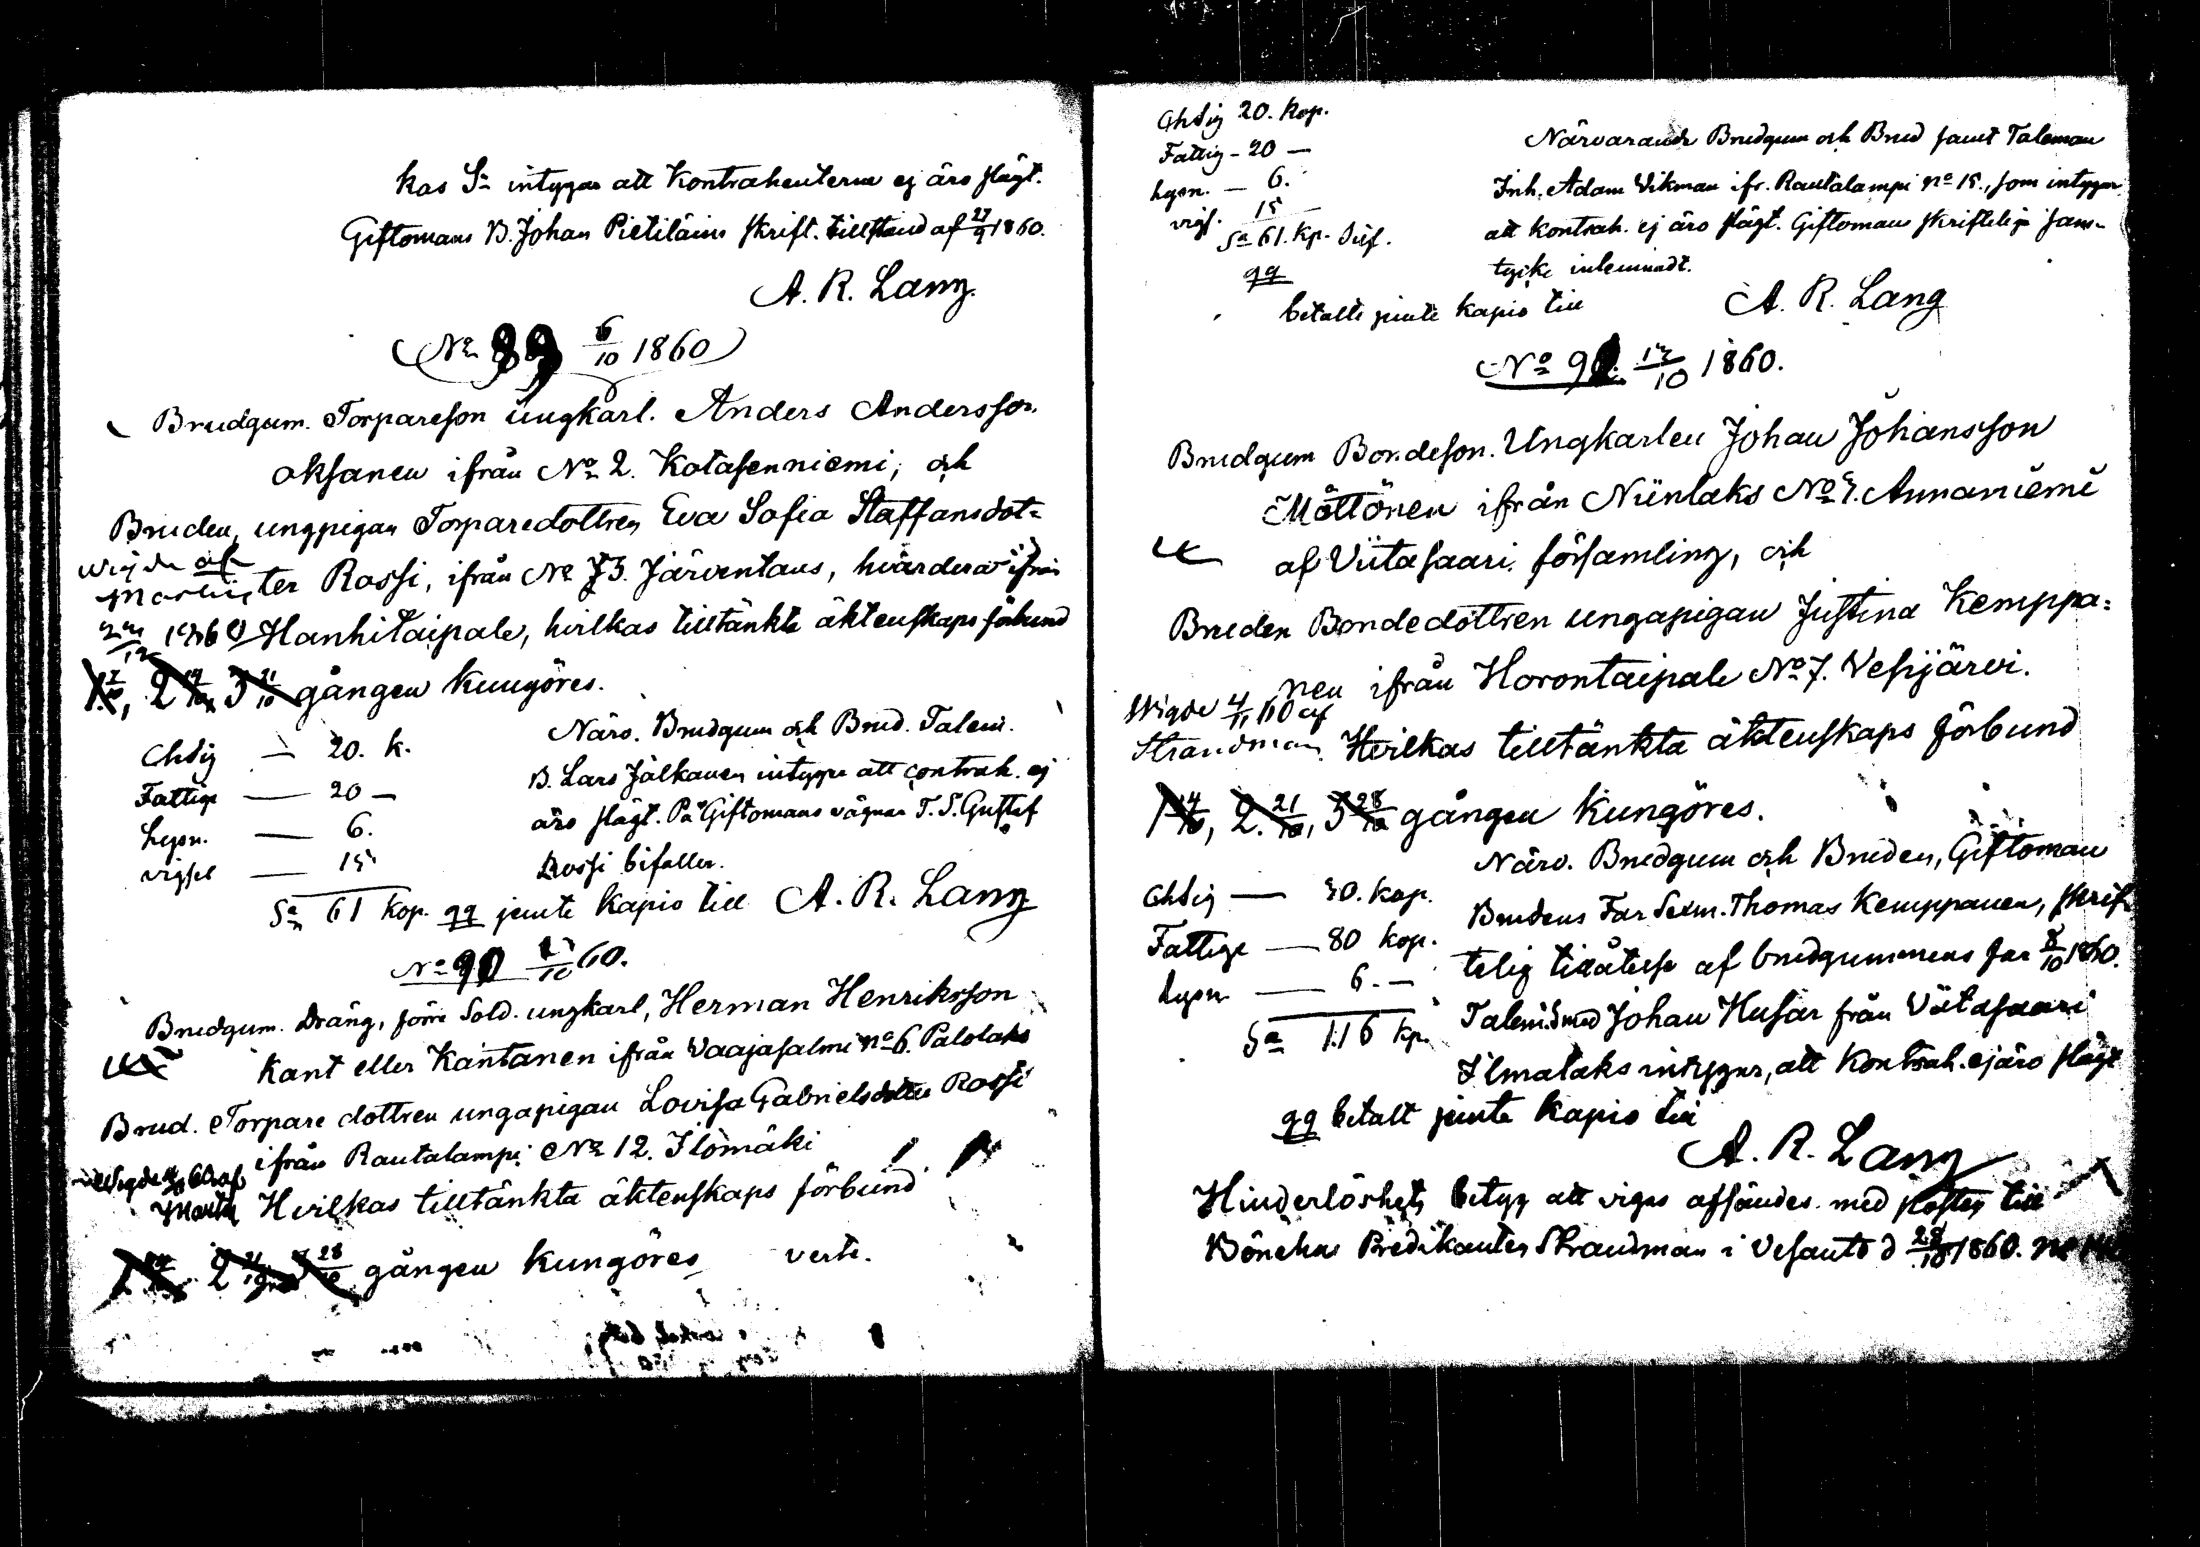 kas Sn intygar att Kontrahenterna ej äro slägt.
Giftomans B. Johan Pietiläins skrift. tillstånd af 27/9 1860.
A. R. Lang.
No 89 6/10 1860
Brudgum. Torpareson ungkarl. Anders Andersson.
Oksanen ifrån No 2. Katasenniemi, och
Bruden, ungpigan Torparedottren Eva Sofia Staffansdot=
wigde af
ter Rossi, ifrån No 73. Järventaus, hvardera ifrån
1860 Hanhitaipale, hvilkas tilltänkta äktenskaps förbund
1 7/10, 2 14/10 3 21/10 gången kungöres.
Närv. Brudgum och Brud. Talem.
Chdig — 20. k.
B. Lars Jalkanen intygar att contrah. ej
Fattige — 20 —
äro slägt. På Giftomans vägnar T. S. Gustaf
Lysn. — 6.
Rossi bifaller.
vigsel — 15
Sa 61 kop. qq jemte kapio till A. R. Lang
No 90 /10 60.
Brudgum. Dräng, förre Sold. ungkarl, Herman Henriksson
Kant eller Kantanen ifrån Vaajasalmi no 6. Palolaks
Brud. Torpare dottren ungapigan Lovisa Gabrielsdotter Rossi
ifrån Rautalampi No 12. Ilomäki
Wigde af
Hvilkas tilltänkta äktenskaps förbund
2 21/10 3 28/10 gången kungöres verte.
Chdig 20. kop.
Fattig - 20 —
Lysn. — 6.
vigs. 15
Sa 61. kp. Silf.
qq
betalte jemte kapio till
Närvarande Brudgum och Brud samt Taleman
Inh. Adam Vikman ifr. Rautalampi no 15., som intygar
att kontrah. ej äro slägt. Giftoman skriftelig sam-
tycke inlemnadt.
A. R. Lang
No 91. /10 1860.
Brudgum Bondeson. Ungkarlen Johan Johansson
Möttönen ifrån Niinlaks No Annaniemi
af Viitasaari församling, och
Bruden Bondedottren ungapigan Justina Kemppa=
nen ifrån Horontaipale No 7. Vesijärvi.
Wigde 4/11 60 af
Strandman. Hvilkas tilltänkta äktenskaps förbund
1 14/10, 2. 21/10, 3 28/10 gången kungöres.
Närv. Brudgum och Bruden, Giftoman
Chdig — 30. kop.
Brudens Far Sexm. Thomas Kemppanen, skrif-
Fattige — 80 kop.
telig tillåtelse af brudgummens far 8/10 1860.
Lysn — 6. —
Talem. Smed Johan Husar från Viitasaari
Sa 1.16 kp.
Ilmalaks intygar, att Kontrah. ej äro slägt
qq betalt jemte kapio till
A. R. Lang
Hinderlöshets betyg att vigas afsändes med posten till
Bönehus Predikanten Strandman i Vesanto d 28/10 1860.